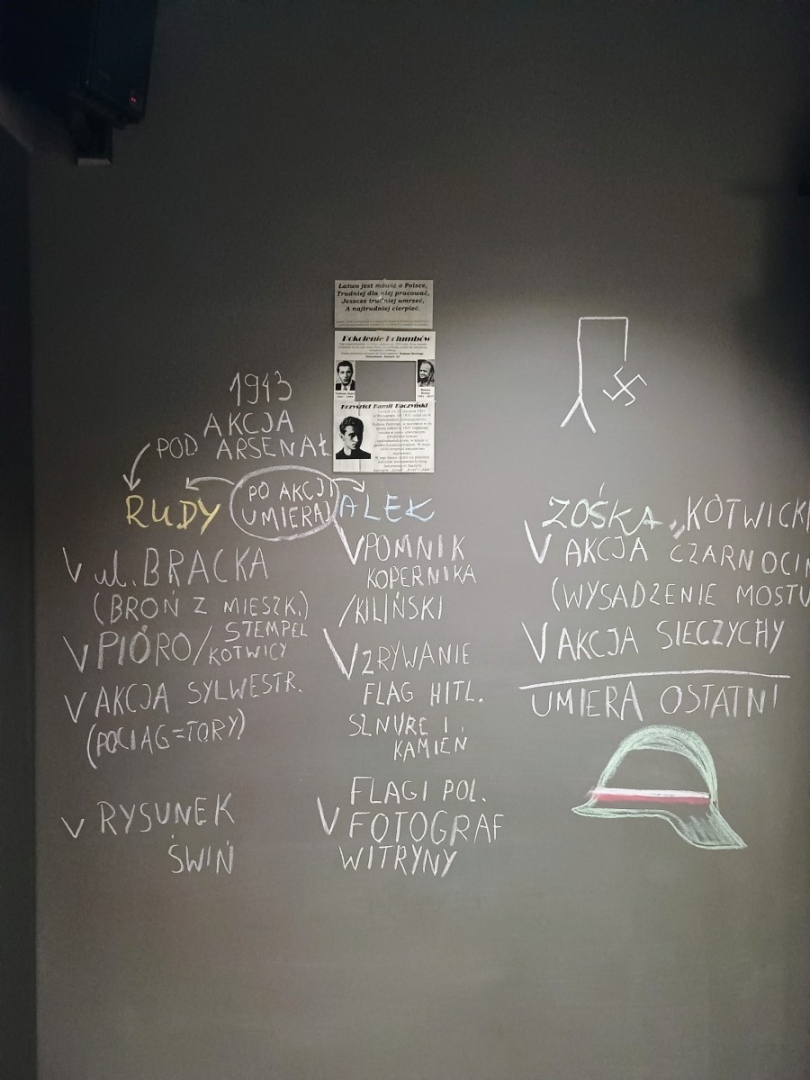 Łatwo jest mówić o Polsce,
Trudniej dla niej pracować,
Jeszcze trudniej umrzeć,
A najtrudniej cierpieć.
Pokolenie Kolumbów
Krzysztof Kamil Baczyński
1943
AKCJA
POD ARSENAŁ
RUDY
PO AKCJI
UMIERAJ
ALEK
V ul. BRACKA
(BROŃ Z MIESZK.)
V PIÓRO/STEMPEL
KOTWICY
V AKCJA SYLWESTR.
(POCIĄG=TORY)
V RYSUNEK
ŚWIŃ
V POMNIK
KOPERNIKA
/KILIŃSKI
V ZRYWANIE
FLAG HITL.
SZNUREK I
KAMIEŃ
FLAGI POL.
V FOTOGRAF
WITRYNY
ZOŚKA „KOTWICK
V AKCJA CZARNOCIN
(WYSADZENIE MOSTU
V AKCJA SIECZYCHY
UMIERA OSTATNI